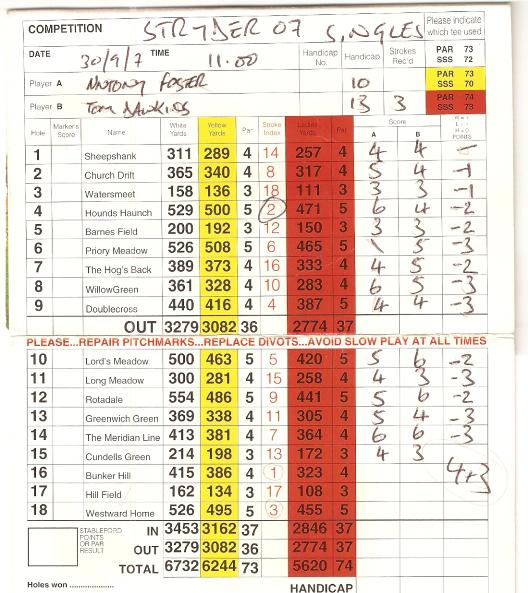 COMPETITION STRYDER 07 SINGLES Please indicate which tee used
DATE 30/9/7 TIME 11.00 Handicap No. Handicap Strokes Rec'd PAR 73 SSS 72
Player A ANTONY FOSTER 10 PAR 73 SSS 70
Player B TOM DAWKINS 13 3 PAR 74 SSS 73
Hole Marker's Score Name White Yards Yellow Yards Par Stroke Index Ladies Yards Par Score A B W = + L - H = O POINTS
1 Sheepshank 311 289 4 14 257 4 4 4 -
2 Church Drift 365 340 4 8 317 4 5 4 -1
3 Watersmeet 158 136 3 18 111 3 3 3 -1
4 Hounds Haunch 529 500 5 2 471 5 6 4 -2
5 Barnes Field 200 192 3 12 150 3 3 3 -2
6 Priory Meadow 526 508 5 6 465 5 \ 5 -3
7 The Hog's Back 389 373 4 16 333 4 4 5 -2
8 WillowGreen 361 328 4 10 283 4 6 5 -3
9 Doublecross 440 416 4 4 387 5 4 4 -3
OUT 3279 3082 36 2774 37
PLEASE...REPAIR PITCHMARKS...REPLACE DIVOTS...AVOID SLOW PLAY AT ALL TIMES
10 Lord's Meadow 500 463 5 5 420 5 5 6 -2
11 Long Meadow 300 281 4 15 258 4 4 3 -3
12 Rotadale 554 486 5 9 441 5 5 6 -2
13 Greenwich Green 369 338 4 11 305 4 5 4 -3
14 The Meridian Line 413 381 4 7 364 4 6 6 -3
15 Cundells Green 214 198 3 13 172 3 4 3
16 Bunker Hill 415 386 4 1 323 4 4+3
17 Hill Field 162 134 3 17 108 3
18 Westward Home 526 495 5 3 455 5
STABLEFORD POINTS OR PAR RESULT IN 3453 3162 37 2846 37
OUT 3279 3082 36 2774 37
TOTAL 6732 6244 73 5620 74
Holes won .................... HANDICAP